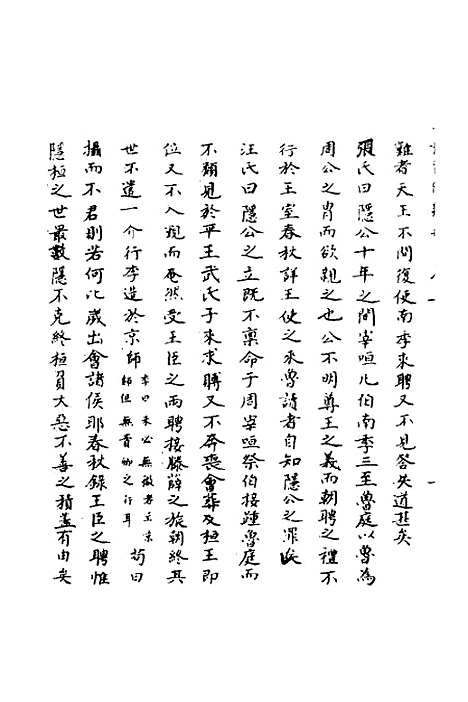 難者天王不問復使南季來聘又不見答失道甚矣
張氏曰隱公十年之間宰咺凡伯南季三至魯庭以魯為
周公之胄而欲親之也公不明尊王之義而朝聘之禮不
行於王室春秋詳王使之來魯讀者自知隱公之罪矣
汪氏曰隱公之立既不稟命于周宰咺祭伯接踵魯庭而
不類見於平王武氏子來求賻又不奔喪會葬及桓王即
位又不入覲而晏然受王臣之再聘接滕薛之旅朝終其
世不遣一介行李造於京師
李曰未必無微者至京
師但無書卿之行耳
苟曰
攝而不君則若何比歲出會諸侯耶春秋錄王臣之聘惟
隱桓之世最數隱不克終桓負大惡不善之積蓋有由矣